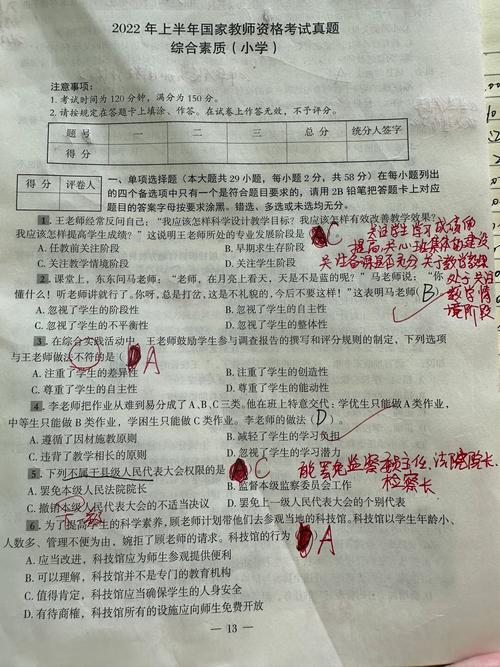 2022 年上半年国家教师资格考试真题
综合素质（小学）
注意事项：
1. 考试时间为 120 分钟，满分为 150 分。
2. 请按规定在答题卡上填涂、作答。在试卷上作答无效，不予评分。
题 号 一 二 三 总 分 统分人签字
得 分
得 分 评卷人
一、单项选择题（本大题共 29 小题，每小题 2 分，共 58 分）在每小题列出
的四个备选项中只有一个是符合题目要求的，请用 2B 铅笔把答题卡上对应
题目的答案字母按要求涂黑。错选、多选或未选均无分。
1. 王老师经常反问自己：“我应该怎样科学设计教学目标？我应该怎样有效改善教学效果？
我应该怎样提高学生成绩？”这说明王老师所处的专业发展阶段是 C
关注学生学习成绩的
提高，关心班集体的建设
关注备课是否充分 关于教学整理
A. 任教前关注阶段 B. 早期求生存阶段
C. 关注教学情境阶段 D. 关注学生阶段
处于关注
教学情
境阶段
2. 课堂上，东东问马老师：“老师，在月亮上看天，天是不是蓝的呢？”马老师说：“你
懂什么！听老师讲就行了。你呀，总是打岔，这是不礼貌的，今后不要这样！”这表明马老师(B)
A. 忽视了学生的阶段性 B. 忽视了学生的自主性
C. 忽视了学生的不平衡性 D. 忽视了学生的整体性
3. 在综合实践活动中，王老师鼓励学生参与调查报告的撰写和评分规则的制定，下列选项
与王老师做法不符的是( A
A. 注重了学生的差异性 B. 注重了学生的创造性
C. 尊重了学生的自主性 D. 尊重了学生的能动性
4. 李老师把作业从难到易分成了 A、B、C 三类。他在班上特意交代：学优生只能做 A 类作业，
中等生只能做 B 类作业，学困生只能做 C 类作业。李老师的做法( D )。
A. 遵循了因材施教原则 B. 减轻了学生的学习负担
C. 违背了教学相长的原则 D. 忽视了学生的学习潜力
5. 下列不属于县级人民代表大会权限的是 C
能罢免监察委主任、法院院长、
检察长
A. 罢免本级人民法院院长 B. 监督本级监察委员会工作
C. 撤销本级人民代表大会的不适当决议 D. 罢免上一级人民代表大会的个别代表
下级
6. 为了提高学生的科学素养，顾老师计划带他们去参观当地的科技馆。科技馆以学生年龄小、
人数多、管理不便为由，婉拒了顾老师的请求。科技馆的行为( A
A. 应当改进，科技馆应为师生参观提供便利
B. 可以理解，科技馆并不是专门的教育机构
C. 值得肯定，科技馆应当确保学生的人身安全
D. 有待商榷，科技馆所有的设施应向师生免费开放
— 13 —